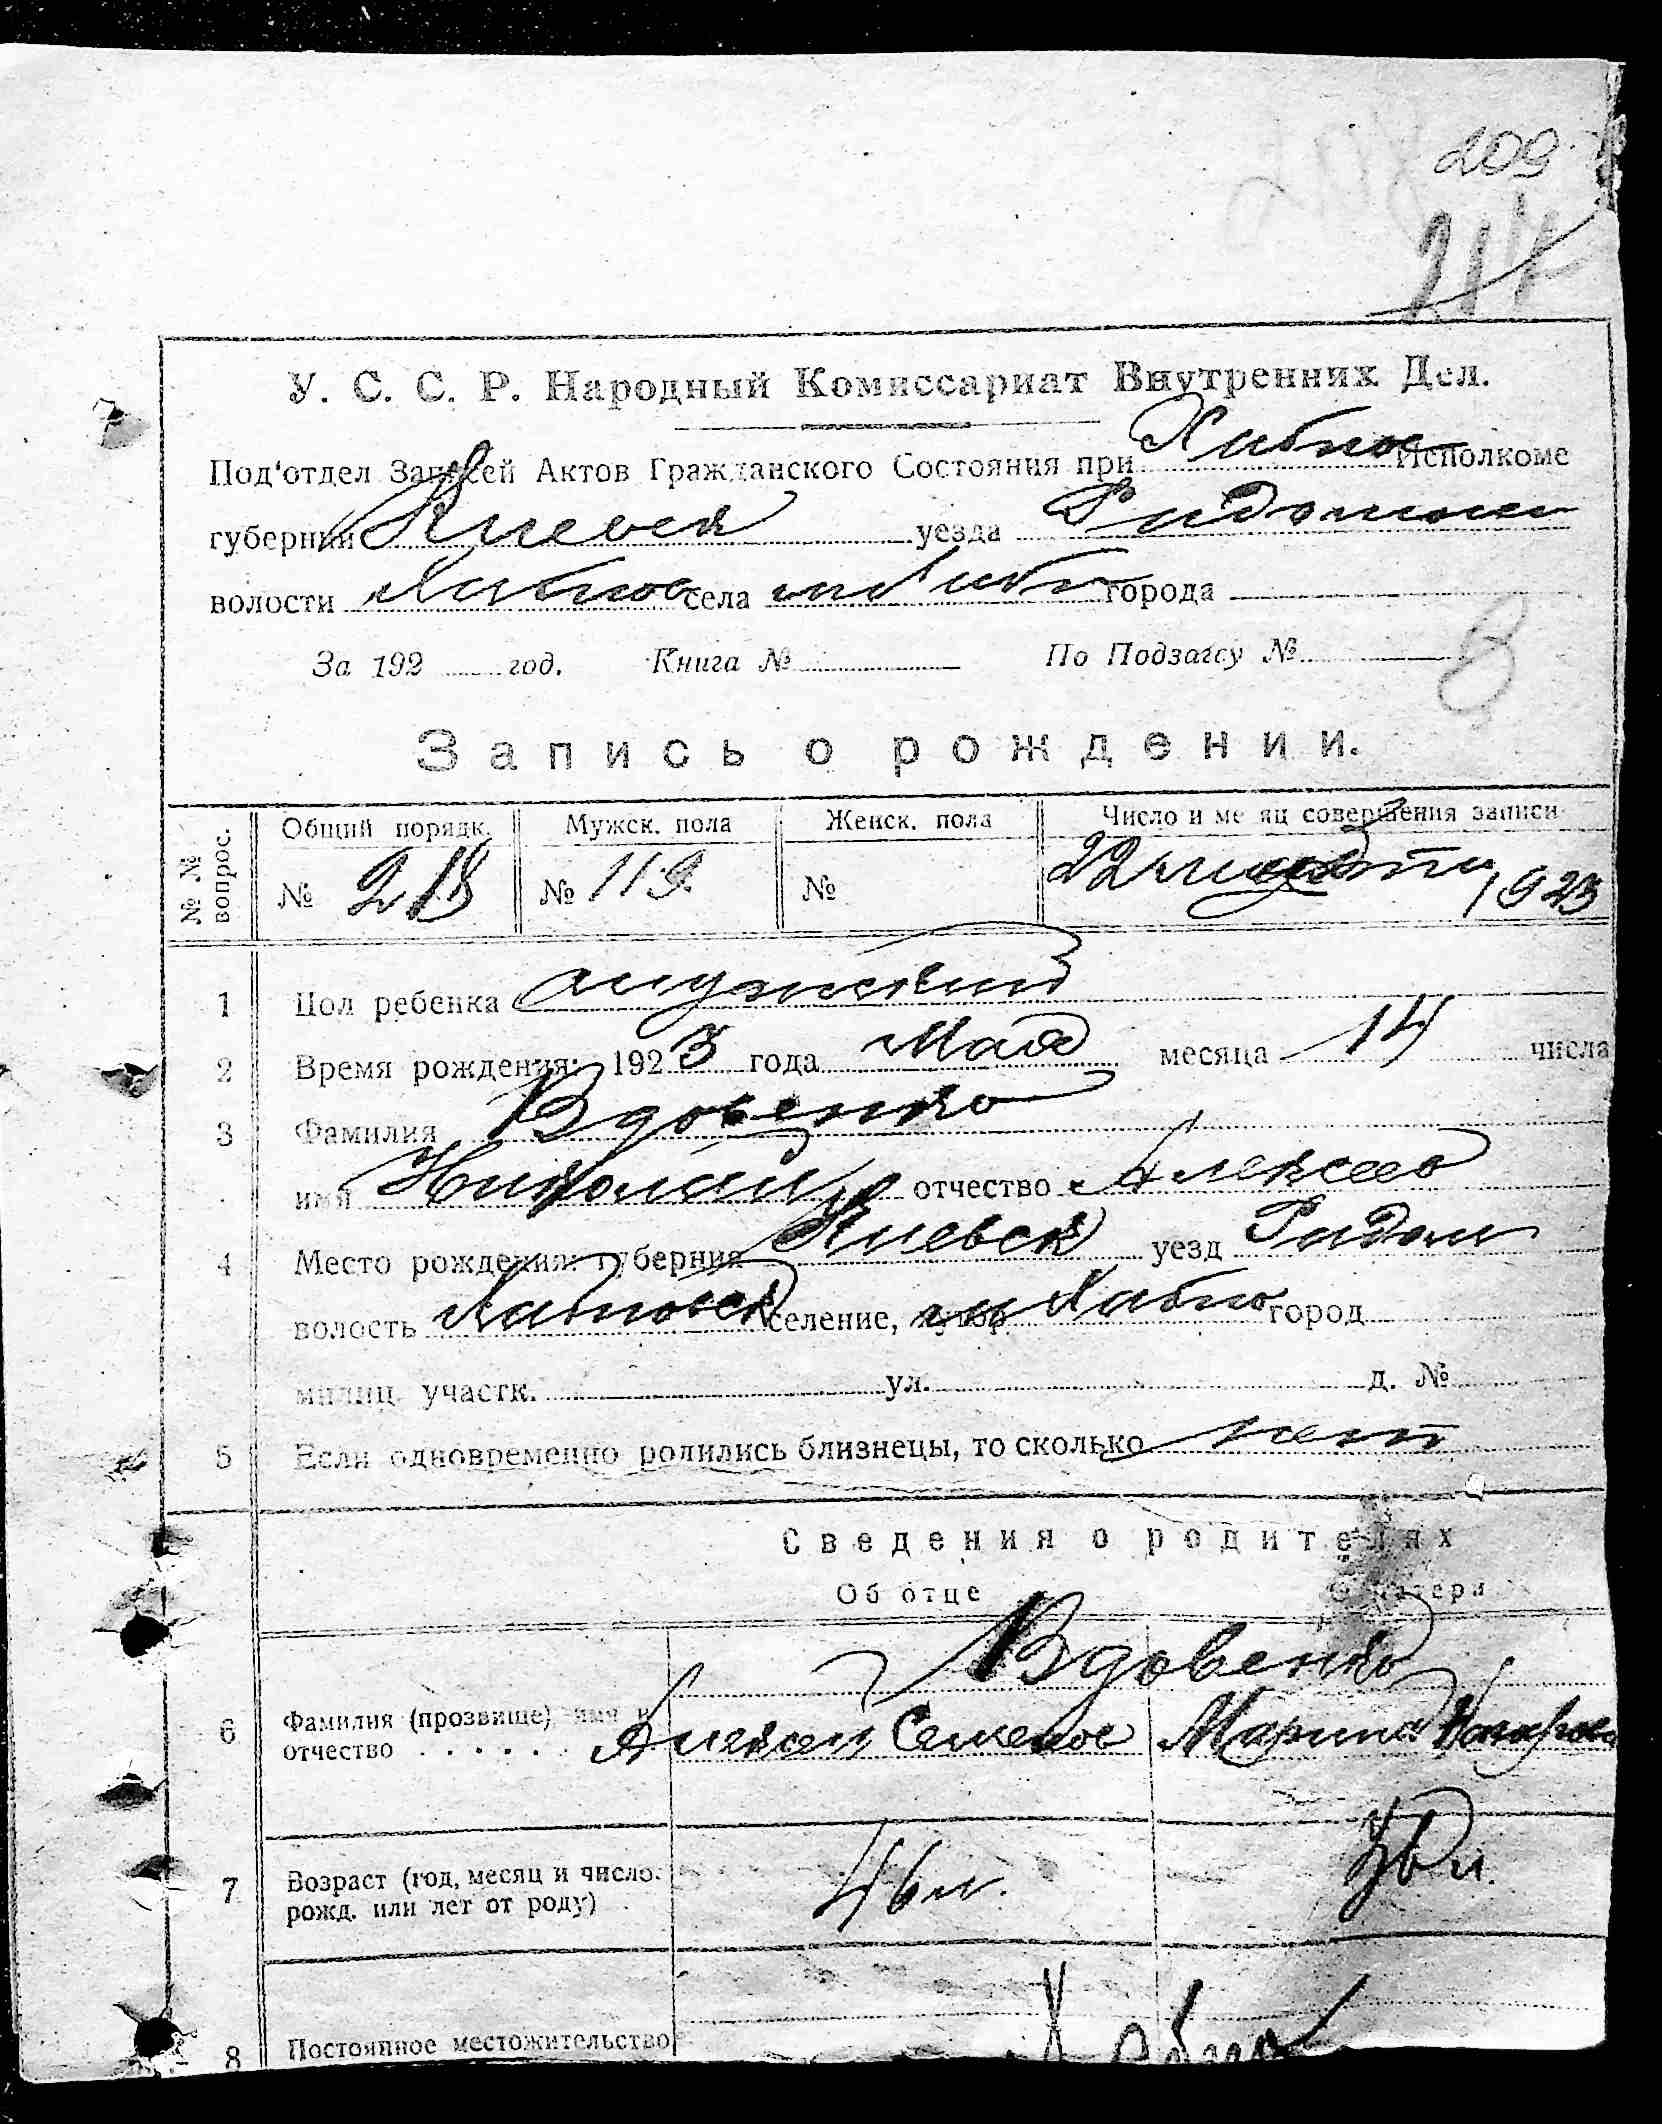 209
214
У. С. С. Р. Народный Комиссариат Внутренних Дел.
Под'отдел Записей Актов Гражданского Состояния при Хабное Исполкоме
губернии Киевск уезда
волости Хабное села города
8
За 192 год. Книга № По Подзагсу №
Запись о рождении.
№ № вопрос. Общий порядк. Мужск. пола Женск. пола Число и месяц совершения записи
№ 218 № 119 № 22 1923
1 Пол ребенка мужской
2 Время рождения: 1923 года Мая месяца 14 числа
3 Фамилия Вдовенко
имя Николай отчество Алексеев
4 Место рождения: губерния Киевск уезд Радом
волость Хабновск селение, хутор м Хабно город
милиц. участк. ул. д. №
5 Если одновременно родились близнецы, то сколько нет
Сведения о родителях
Об отце О матери
Вдовенко
6 Фамилия (прозвище) имя и
отчество . . . . . Алексей Семенов Марина
7 Возраст (год, месяц и число.
рожд. или лет от роду) 46 л.
8 Постоянное местожительство Хабно